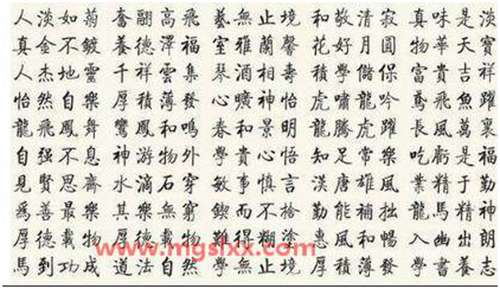 人淡如菊 奮翮高飛 藝無止境 和敬清寂 真味是淡
真金不鍍 養德澤福 室雅蘭馨 花好月圓 物華天寶
人杰地靈 千祥雲集 琴酒相壽 學儲 富貴吉祥
怡然自樂 厚積薄發 心曠神怡 虎嘯龍吟 鳶飛魚躍
龍飛鳳舞 鸞鳳和鳴 春和景明 龍騰虎躍 長風萬裏
自强不息 神游物外 和貴心悟 知足常樂 吃虧是福
見賢思齊 水滴石穿 敏事慎言 漢唐雄風 業精于勤
爲善最樂 其樂無窮 鍥而不捨 勤能補拙 龍馬精神
厚德載物 難得糊塗 惠風和暢 入幽出朗
www.mgslxx.com
馬到功成 道法自然 學無止境 厚積薄發 學書養志